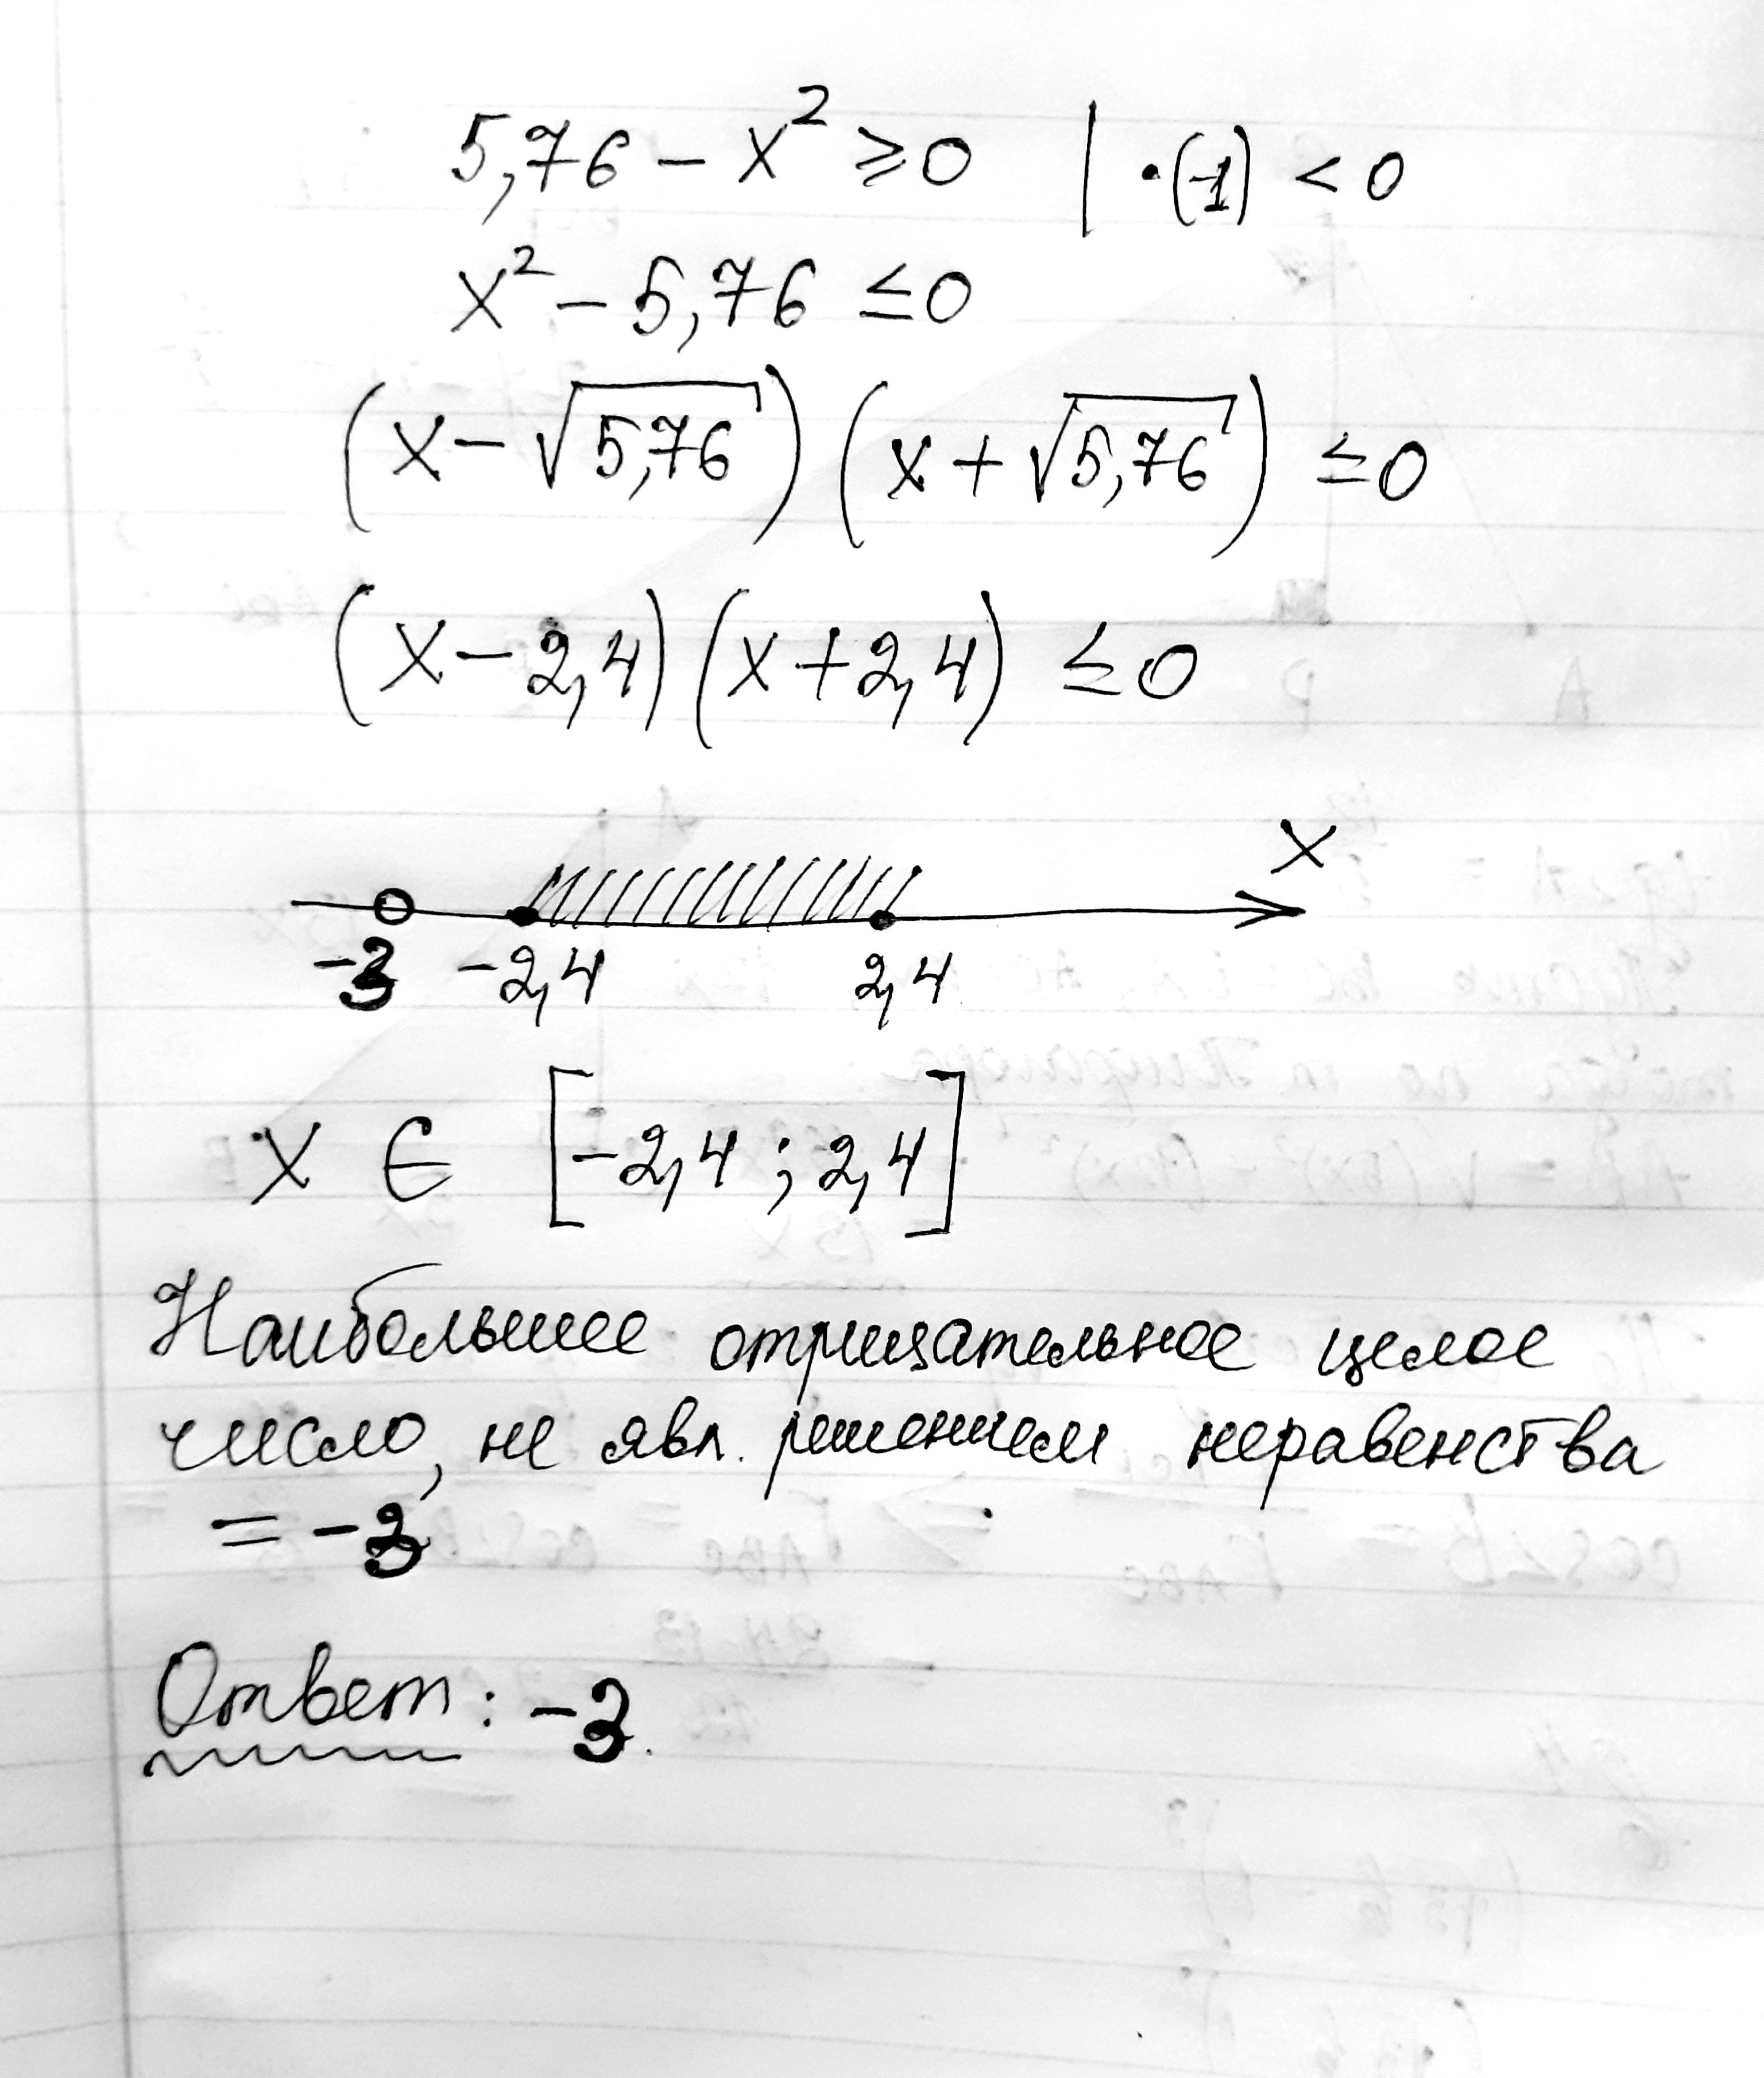 5,76 − x² ⩾ 0 | ·(-1) < 0
x² − 5,76 ≤ 0
(x − √5,76)(x + √5,76) ≤ 0
(x − 2,4)(x + 2,4) ≤ 0
x
-3 -2,4 2,4
x ∈ [-2,4 ; 2,4]
Наибольшее отрицательное целое
число, не явл. решением неравенства
= -3
Ответ: -3.